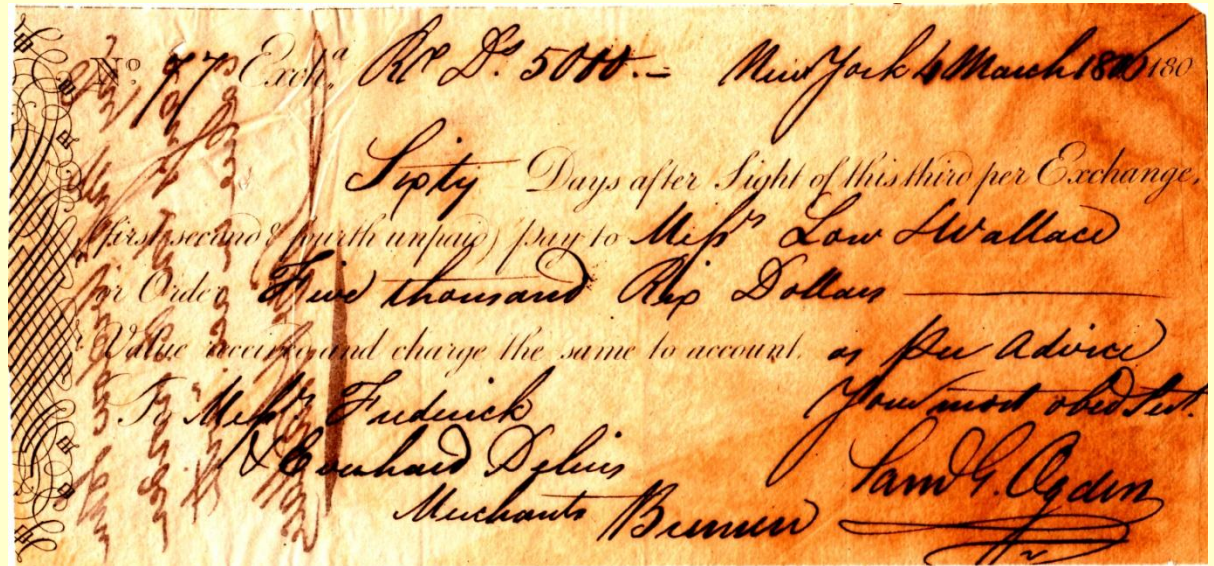 No. 77 Excha. Rx Ds. 5000.= New York 4 March 1806 180
Sixty Days after Sight of this third per Exchange,
(first second & fourth unpaid) pay to Messrs Low & Wallace
or Order Five thousand Rix Dollars
Value received and charge the same to account, as per advice
To Messrs Frederick Your most obed Sert.
& Everhard Delius Saml G. Ogden
Merchants Bremen